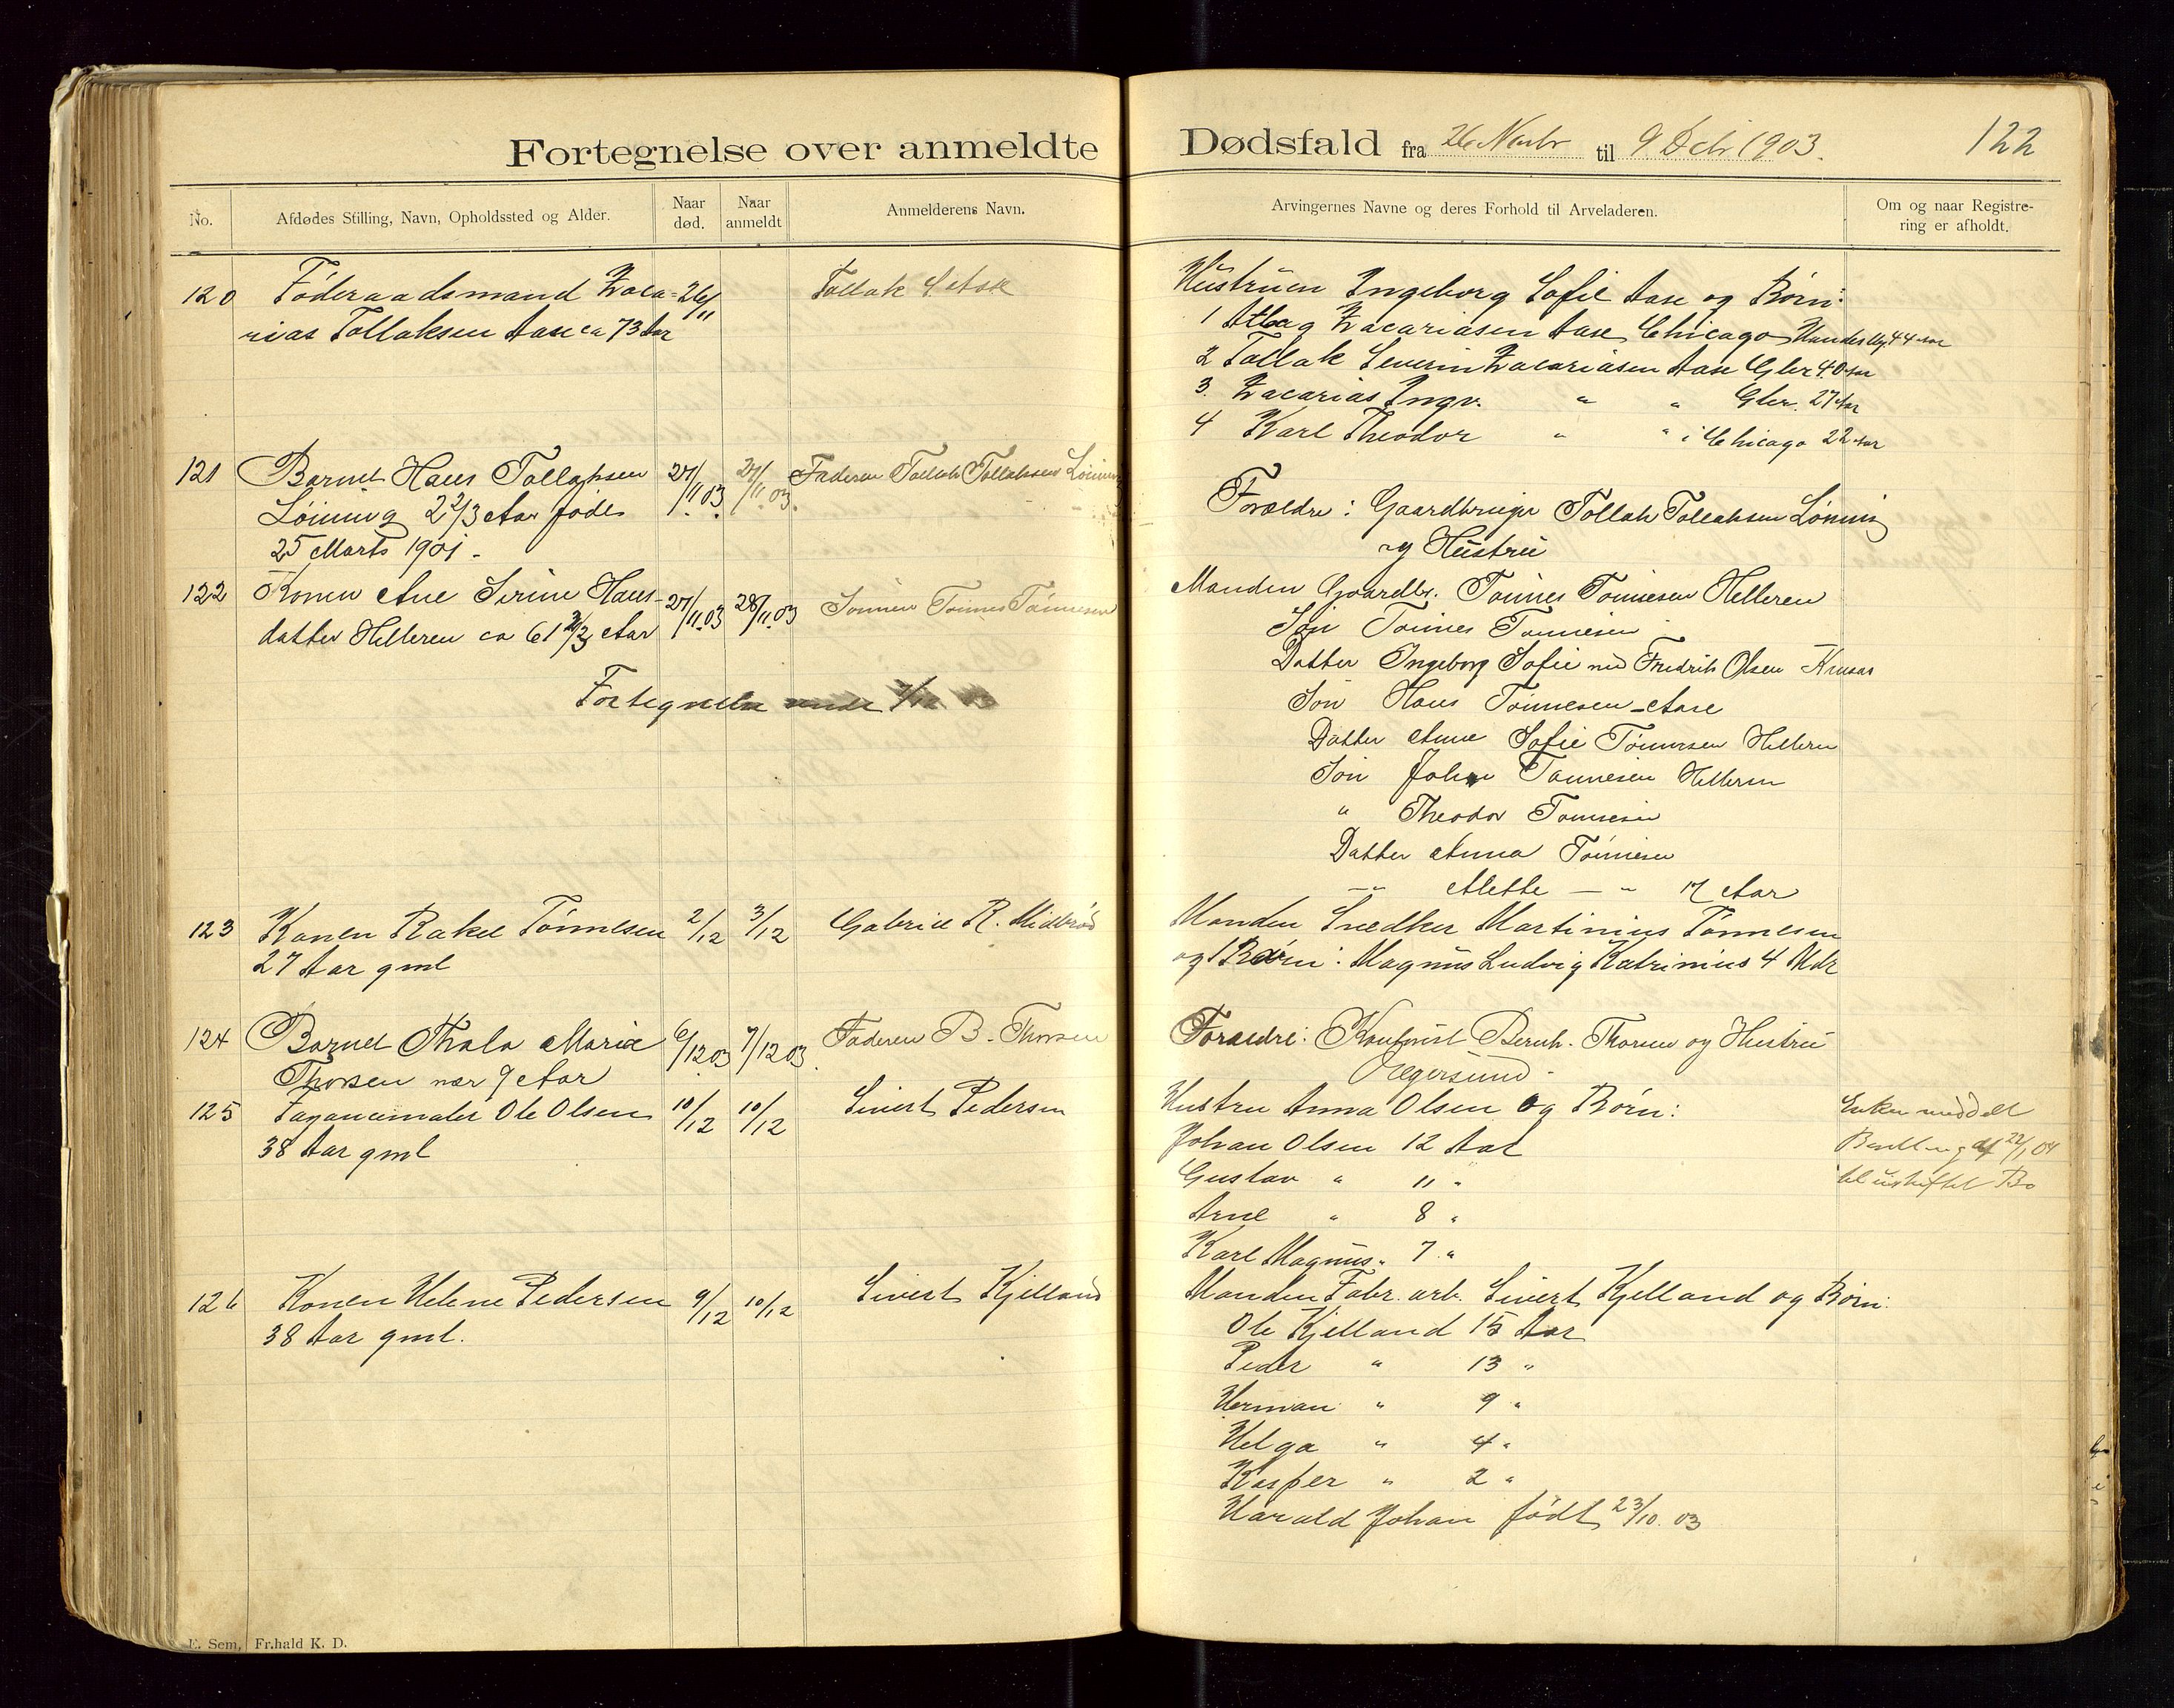 Fortegnelse over anmeldte Dødsfald fra 26 Novbr til 9 Dcbr 1903.
122
No.
Afdødes Stilling, Navn, Opholdssted og Alder.
Naar død.
Naar anmeldt
Anmelderens Navn.
Arvingernes Navne og deres Forhold til Arveladeren.
Om og naar Registre-
ring er afholdt.
120 Føderaadsmand Zaca- 26/11 Tollak S Aase
rias Tollaksen Aase ca 73 Aar
Hustruen Ingeborg Sofie Aase og Børn:
1 Atlag Zacariasen Aase Chicago 44 Aar
2 Tollak Severin Zacariasen Aase Gbr 40 Aar
3. Zacarias Ingv. " " Gbr. 27 Aar
4 Karl Theodor " " i Chicago 22 Aar
121 Barnet Hans Tollaksen 27/11.03. 27/11.03. Faderen Tollak Tollaksen Lønning
Lønning 2 2/3 Aar født
25 Marts 1901.
Forældre: Gaardbruger Tollak Tollaksen Lønning
og Hustru
122 Konen Ane Serine Hans- 27/11.03 28/11.03 Sønnen Tønnes Tønnesen
datter Helleren ca 61 2/3 Aar
Fortegnelse
Manden Gaardbr. Tønnes Tønnesen Helleren
Søn Tønnes Tønnesen
Datter Ingeborg Sofie med Fredrik Olsen
Søn Hans Tønnesen Aase
Datter Anne Sofie Tønnesen Helleren
Søn Johan Tønnesen Helleren
" Theodor Tønnesen
Datter Anna Tønnesen
— " Alette — " 17 Aar
123 Konen Rakel Tønnesen 2/12 3/12 Gabriel R. Midbrød
27 Aar gml
Manden Snedker Martinius Tønnesen
og 1 Barn: Magnus Ludvig Katrinius 4 Mdr
124 Barnet Thala Marie 6/12 03 7/12 03. Faderen B. Thorsen
Thorsen nær 9 Aar
Forældre: Bernh. Thorsen og Hustru
Egersund.
125 Fayancemaler Ole Olsen 10/12 10/12 Sivert Pedersen
38 Aar gml
Hustru Anna Olsen og Børn:
Johan Olsen 12 Aar
Gustav " 11 "
Arne " 8 "
Karl Magnus " 7 "
Enken meddelt
Bevilling af 22/1 04
til uskiftet Bo
126 Konen Helene Pedersen 9/12 10/12 Sivert Kjelland
38 Aar gml.
Manden Fabr. arb. Sivert Kjelland og Børn:
Ole Kjelland 15 Aar
Peder " 13 "
Herman " 9 "
Helga " 4 "
Kasper " 2 "
Harald Johan født 23/10. 03
E. Sem, Fr.hald K. D.